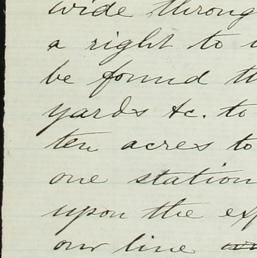 wide throug
a right to
be found th
yards &c. to
ten acres to
one station
upon the exp
our line